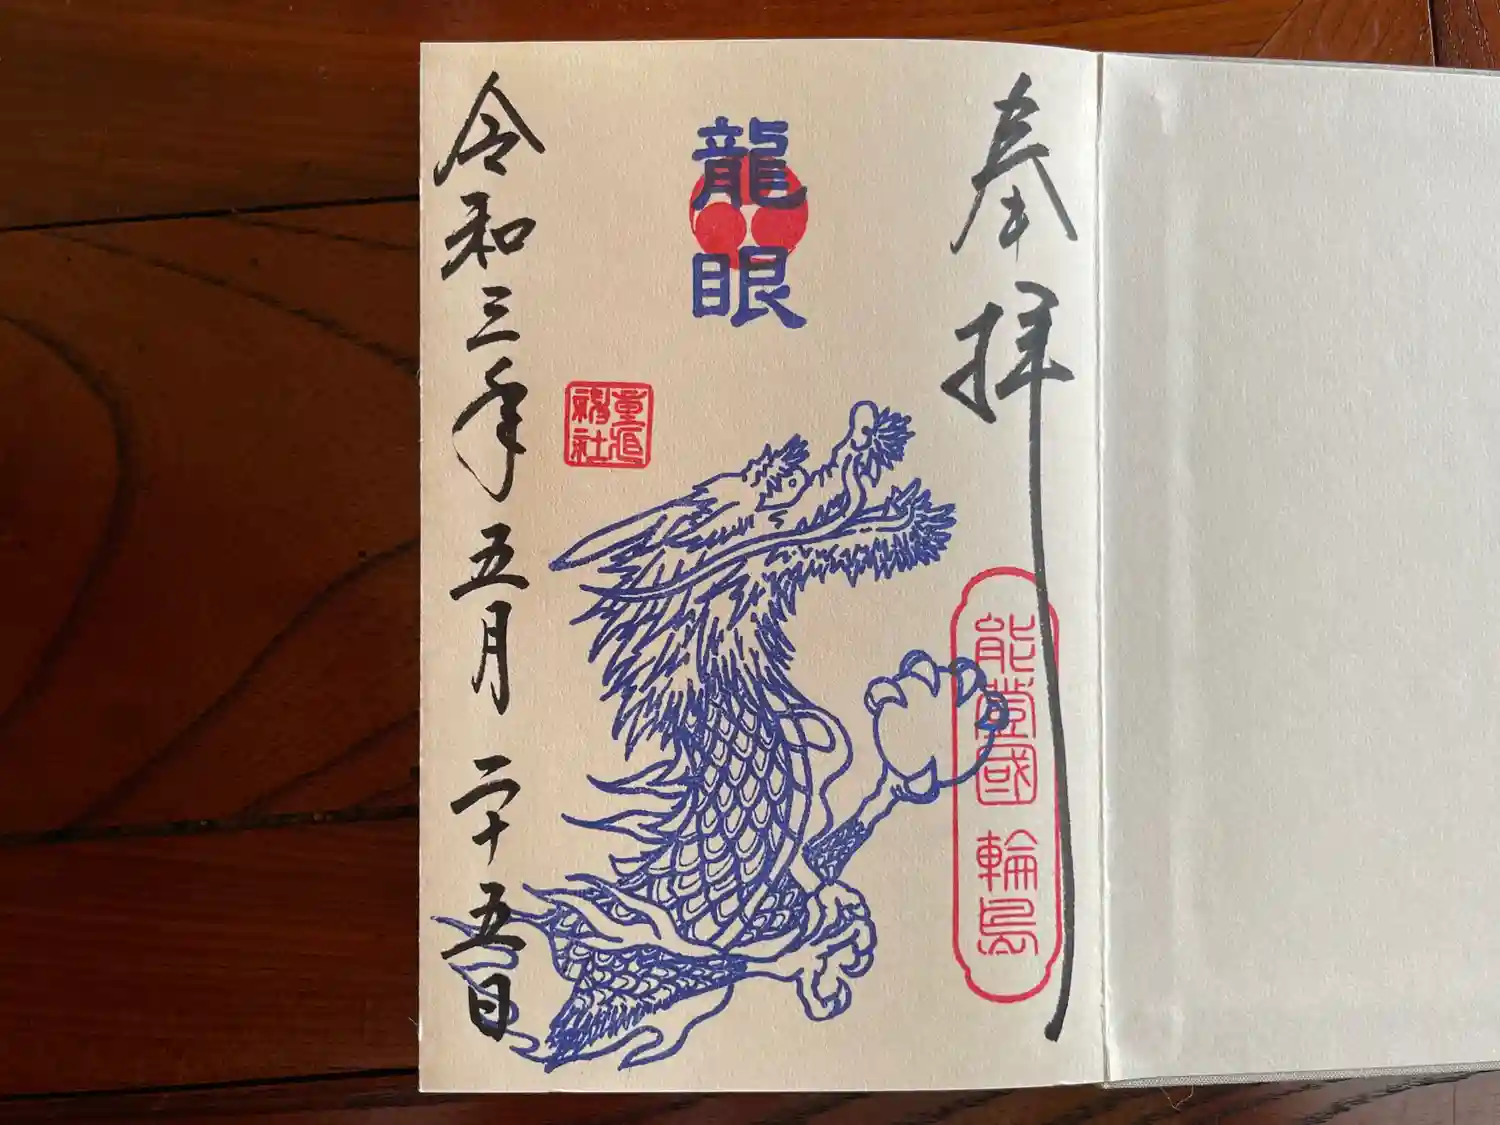 奉拝
能登國 輪島
龍眼
重蔵
神社
令和三年五月二十五日